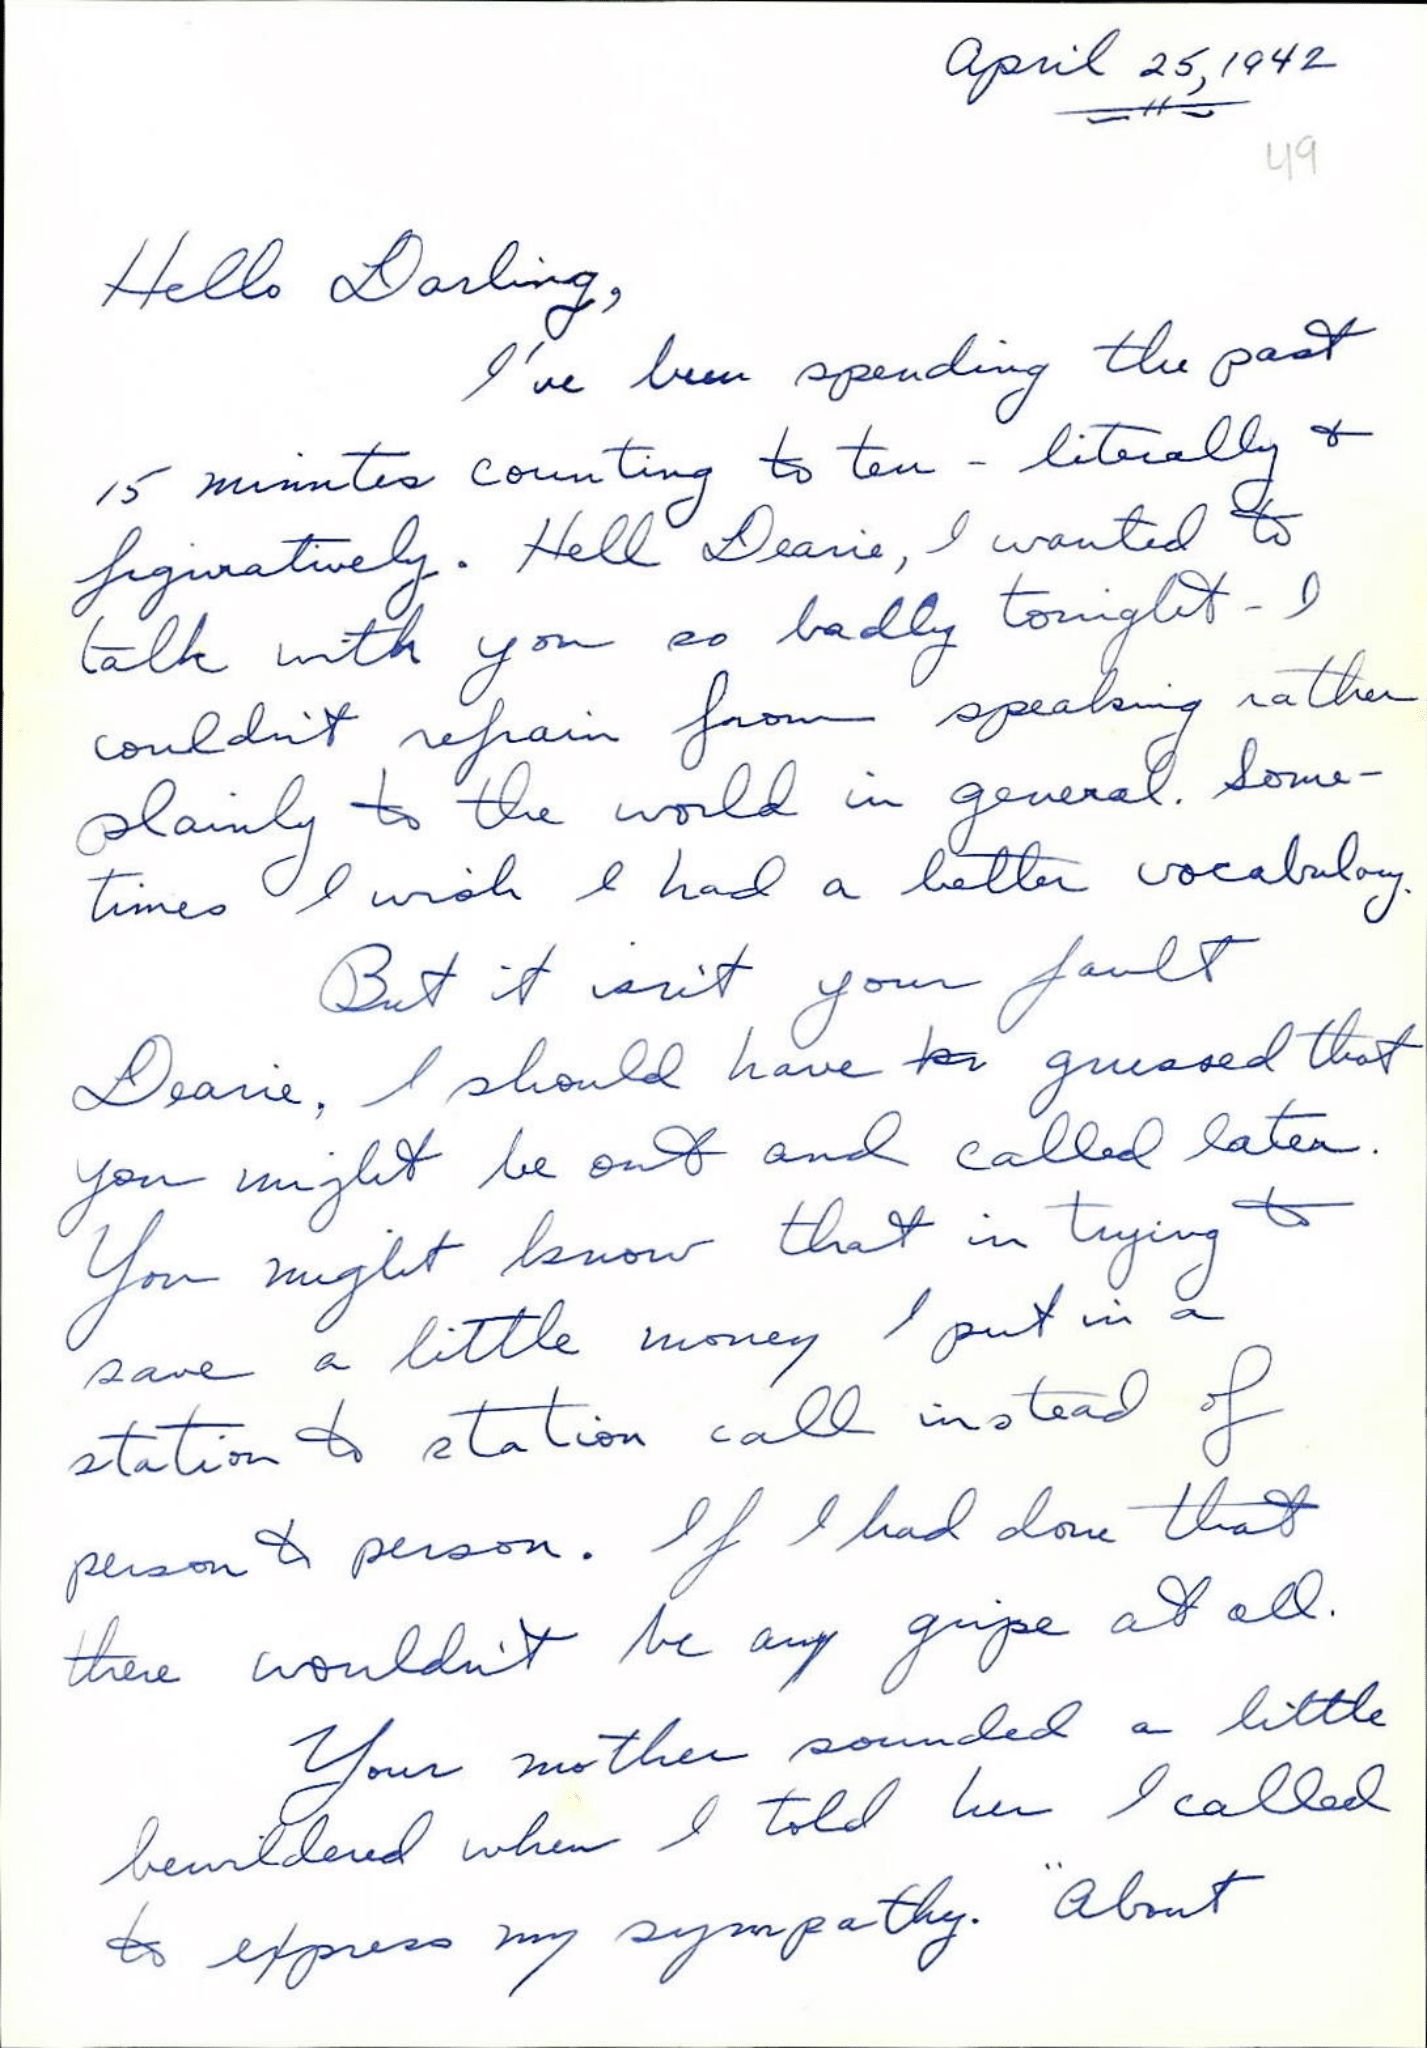 April 25, 1942
49
Hello Darling,
I've been spending the past
15 minutes counting to ten - literally &
figuratively. Hell Dearie, I wanted to
talk with you so badly tonight - I
couldn't refrain from speaking rather
plainly to the world in general. Some-
times I wish I had a better vocabulary.
But it isn't your fault
Dearie, I should have guessed that
you might be out and called later.
You might know that in trying to
save a little money I put in a
station to station call instead of
person to person. If I had done that
there wouldn't be any gripe at all.
Your mother sounded a little
bewildered when I told her I called
to express my sympathy. "About